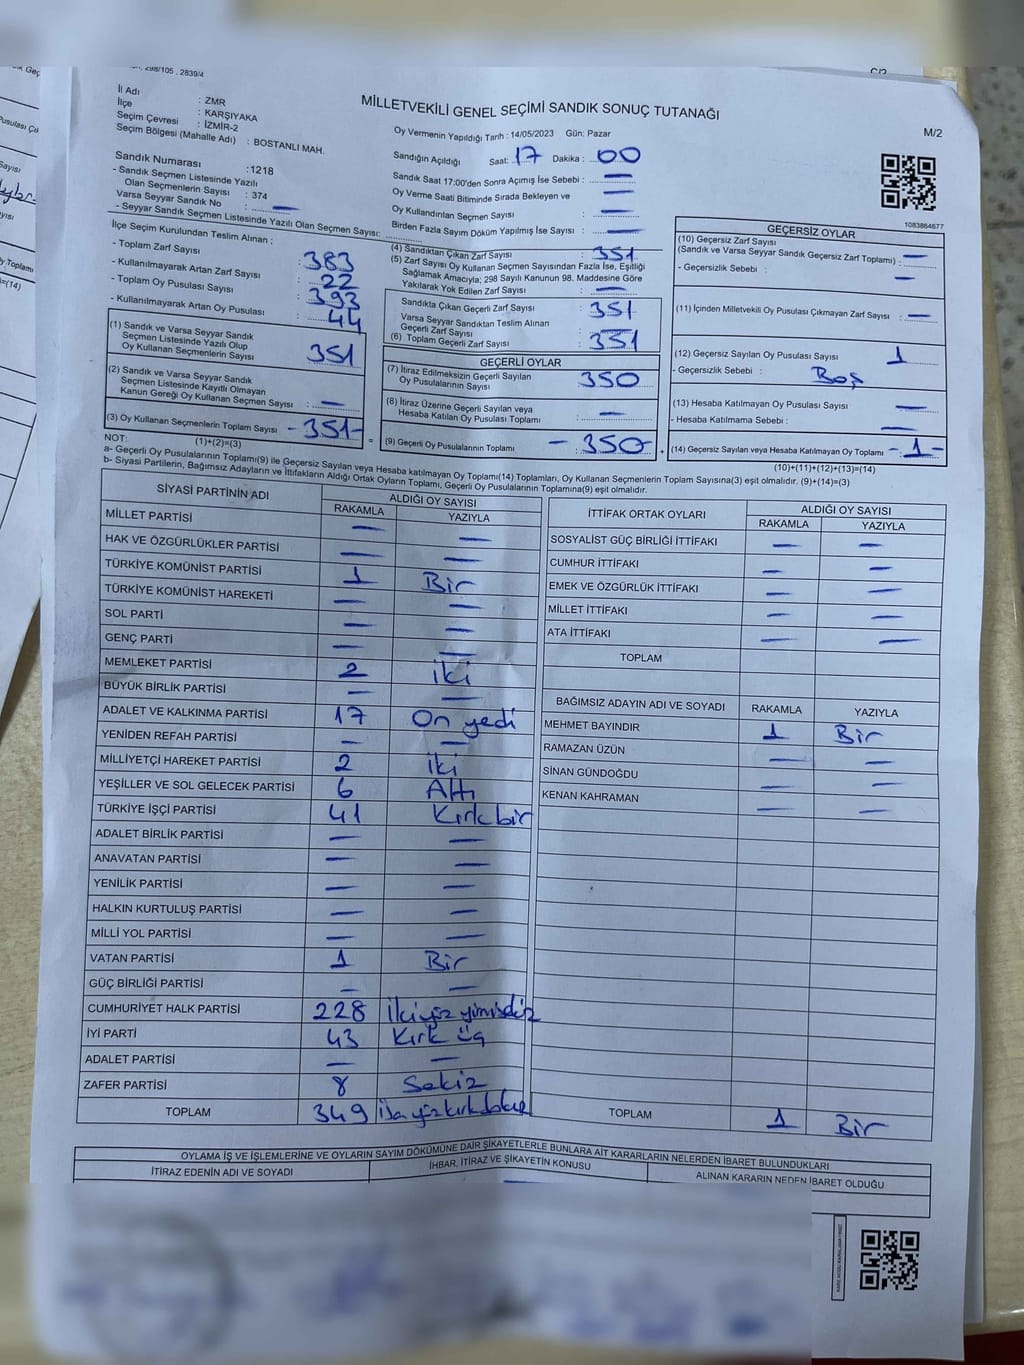 298/105 . 2839/4
MİLLETVEKİLİ GENEL SEÇİMİ SANDIK SONUÇ TUTANAĞI
M/2
İl Adı : ZMR
İlçe : KARŞIYAKA
Seçim Çevresi : İZMİR-2
Seçim Bölgesi (Mahalle Adı) : BOSTANLI MAH.
Sandık Numarası :1218
- Sandık Seçmen Listesinde Yazılı
Olan Seçmenlerin Sayısı : 374
Varsa Seyyar Sandık No : —
- Seyyar Sandık Seçmen Listesinde Yazılı Olan Seçmen Sayısı:
Oy Vermenin Yapıldığı Tarih : 14/05/2023 Gün: Pazar
Sandığın Açıldığı Saat: 17 Dakika : 00
Sandık Saat 17:00'den Sonra Açımış İse Sebebi : —
Oy Verme Saati Bitiminde Sırada Bekleyen ve —
Oy Kullandırılan Seçmen Sayısı : —
Birden Fazla Sayım Döküm Yapılmış İse Sayısı : —
1083864677
İlçe Seçim Kurulundan Teslim Alınan ;
- Toplam Zarf Sayısı : 383
- Kullanılmayarak Artan Zarf Sayısı : 22
- Toplam Oy Pusulası Sayısı : 393
- Kullanılmayarak Artan Oy Pusulası : 44
(1) Sandık ve Varsa Seyyar Sandık
Seçmen Listesinde Yazılı Olup
Oy Kullanan Seçmenlerin Sayısı : 351
(2) Sandık ve Varsa Seyyar Sandık
Seçmen Listesinde Kayıtlı Olmayan
Kanun Gereği Oy Kullanan Seçmen Sayısı : —
(3) Oy Kullanan Seçmenlerin Toplam Sayısı - 351-
(1)+(2)=(3)
(4) Sandıktan Çıkan Zarf Sayısı : 351
(5) Zarf Sayısı Oy Kullanan Seçmen Sayısından Fazla İse, Eşitliği
Sağlamak Amacıyla; 298 Sayılı Kanunun 98. Maddesine Göre
Yakılarak Yok Edilen Zarf Sayısı : —
Sandıkta Çıkan Geçerli Zarf Sayısı : 351
Varsa Seyyar Sandıktan Teslim Alınan
Geçerli Zarf Sayısı : —
(6) Toplam Geçerli Zarf Sayısı : 351
GEÇERLİ OYLAR
(7) İtiraz Edilmeksizin Geçerli Sayılan
Oy Pusulalarının Sayısı : 350
(8) İtiraz Üzerine Geçerli Sayılan veya
Hesaba Katılan Oy Pusulası Toplamı : —
= (9) Geçerli Oy Pusulalarının Toplamı - 350-
GEÇERSİZ OYLAR
(10) Geçersiz Zarf Sayısı
(Sandık ve Varsa Seyyar Sandık Geçersiz Zarf Toplamı) : —
- Geçersizlik Sebebi : —
(11) İçinden Milletvekili Oy Pusulası Çıkmayan Zarf Sayısı : —
(12) Geçersiz Sayılan Oy Pusulası Sayısı : 1
- Geçersizlik Sebebi : Boş
(13) Hesaba Katılmayan Oy Pusulası Sayısı : —
- Hesaba Katılmama Sebebi : —
+ (14) Geçersiz Sayılan veya Hesaba Katılmayan Oy Toplamı - 1 -
(10)+(11)+(12)+(13)=(14)
NOT:
a- Geçerli Oy Pusulalarının Toplamı(9) ile Geçersiz Sayılan veya Hesaba katılmayan Oy Toplamı(14) Toplamları, Oy Kullanan Seçmenlerin Toplam Sayısına(3) eşit olmalıdır. (9)+(14)=(3)
b- Siyasi Partilerin, Bağımsız Adayların ve İttifakların Aldığı Ortak Oyların Toplamı, Geçerli Oy Pusulalarının Toplamına(9) eşit olmalıdır.
SİYASİ PARTİNİN ADI ALDIĞI OY SAYISI
RAKAMLA YAZIYLA
MİLLET PARTİSİ — —
HAK VE ÖZGÜRLÜKLER PARTİSİ — —
TÜRKİYE KOMÜNİST PARTİSİ 1 Bir
TÜRKİYE KOMÜNİST HAREKETİ — —
SOL PARTİ — —
GENÇ PARTİ — —
MEMLEKET PARTİSİ 2 iki
BÜYÜK BİRLİK PARTİSİ — —
ADALET VE KALKINMA PARTİSİ 17 On yedi
YENİDEN REFAH PARTİSİ — —
MİLLİYETÇİ HAREKET PARTİSİ 2 iki
YEŞİLLER VE SOL GELECEK PARTİSİ 6 Altı
TÜRKİYE İŞÇİ PARTİSİ 41 Kırk bir
ADALET BİRLİK PARTİSİ — —
ANAVATAN PARTİSİ — —
YENİLİK PARTİSİ — —
HALKIN KURTULUŞ PARTİSİ — —
MİLLİ YOL PARTİSİ — —
VATAN PARTİSİ 1 Bir
GÜÇ BİRLİĞİ PARTİSİ — —
CUMHURİYET HALK PARTİSİ 228 ikiyüz yirmisekiz
İYİ PARTİ 43 Kırk üç
ADALET PARTİSİ — —
ZAFER PARTİSİ 8 Sekiz
TOPLAM 349
İTTİFAK ORTAK OYLARI ALDIĞI OY SAYISI
RAKAMLA YAZIYLA
SOSYALİST GÜÇ BİRLİĞİ İTTİFAKI — —
CUMHUR İTTİFAKI — —
EMEK VE ÖZGÜRLÜK İTTİFAKI — —
MİLLET İTTİFAKI — —
ATA İTTİFAKI — —
TOPLAM
BAĞIMSIZ ADAYIN ADI VE SOYADI RAKAMLA YAZIYLA
MEHMET BAYINDIR 1 Bir
RAMAZAN ÜZÜN — —
SİNAN GÜNDOĞDU — —
KENAN KAHRAMAN — —
TOPLAM 1 Bir
OYLAMA İŞ VE İŞLEMLERİNE VE OYLARIN SAYIM DÖKÜMÜNE DAİR ŞİKAYETLERLE BUNLARA AİT KARARLARIN NELERDEN İBARET BULUNDUKLARI
İTİRAZ EDENİN ADI VE SOYADI İHBAR, İTİRAZ VE ŞİKAYETİN KONUSU ALINAN KARARIN NEDEN İBARET OLDUĞU